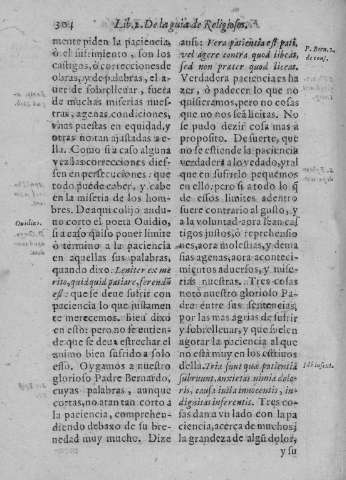 304 Lib. 2. De la guia de Religiosos.
mente piden la paciencia,
ò el sufrimiento, son los
castigos, ò correcciones de
obras, y de palabras, el a-
uer de sobrelleuar, fuera
de muchas miserias nues-
tras, agenas condiciones,
vnas puestas en equidad, y
otras no tan ajustadas a e-
lla. Como si a caso alguna
vez las correcciones dies-
sen en persecuciones: que
todo puede caber, y cabe
en la miseria de los hom-
bres. De aqui colijo, andu-
uo corto el poeta Ouidio,
si a caso quiso poner limite
ò termino a la paciencia
en aquellas sus palabras,
quando dixo: Leniter ex me
rito, quidquid patiare, ferendũ
est: que se deue sufrir con
paciencia lo que justamen-
te merecemos. Bien dixo
en esto: pero no se entien-
de que se deua estrechar el
animo bien sufrido a solo
esso. Oygamos a nuestro
glorioso Padre Bernardo,
cuyas palabras, aunque
cortas, no atan tan corto a
la paciencia, comprehen-
diendo debaxo de su bre-
uedad muy mucho. Dize
Ouidius.
ansi: Vera patientia est pati,
vel agere contra quod libeat,
sed non præter quod liceat.
Verdadera paciencia es ha
zer, ò padecer lo que no
quisieramos, pero no cosas
que no nos sea licitas. No
se pudo dezir cosa mas a
proposito. De suerte, que
no se estiende la paciencia
verdadera a lo vedado, y tal
que en sufrirlo pequemos
en ello: pero si a todo lo q̃
de essos limites adentro
fuere contrario al gusto, y
a la voluntad, aora sean cas
tigos justos, ò reprehensio
nes, aora molestias, y dema
sias agenas, aora aconteci-
mientos aduersos, y mise-
rias nuestras. Tres cosas
notò nuestro glorioso Pa-
dre entre sus sentencias,
por las mas agrias de sufrir
y sobrelleuar, y que suelen
agotar la paciencia al que
no està muy en los estriuos
della. Tria sunt quæ patientiã
subruunt, anxietas nimia dolo-
ris, causa iusta innocentis, in-
dignitas inferentis. Tres co-
sas dan a vn lado con la pa
ciencia, acerca de muchos;
la grandeza de algũ dolor,
y su
P. Bern. 2.